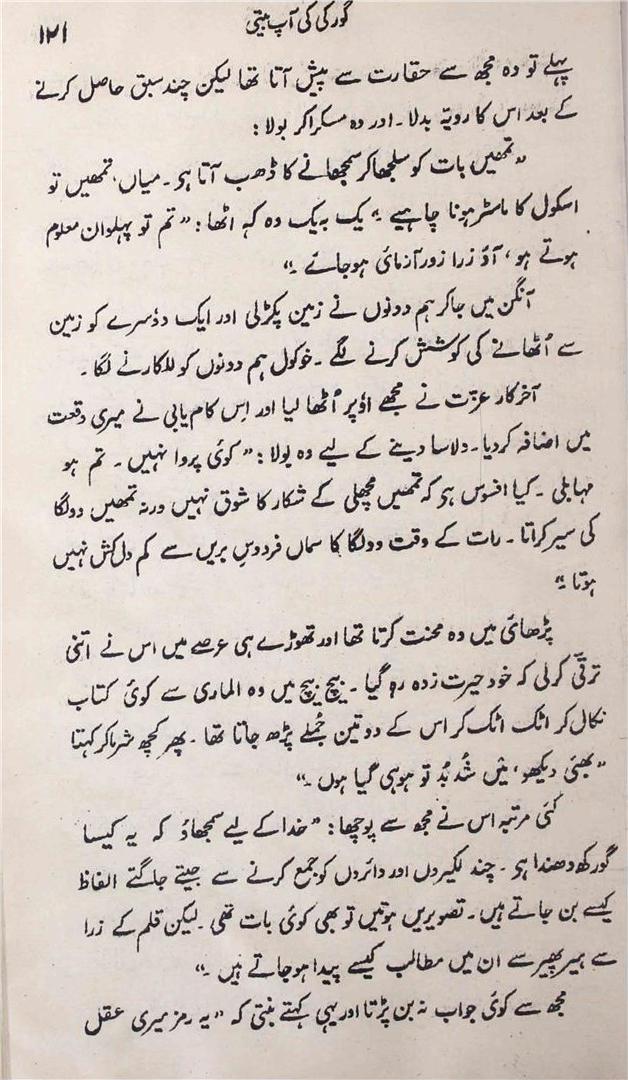 گورکی کی آپ بیتی
۱۲۱
پہلے تو وہ مجھ سے حقارت سے پیش آتا تھا لیکن چند سبق حاصل کرنے
کے بعد اس کا رویّہ بدلا۔ اور وہ مسکرا کر بولا :
”تمھیں بات کو سلجھا کر سمجھانے کا ڈھب آتا ہو۔ میاں، تمھیں تو
اسکول کا ماسٹر ہونا چاہیے۔“ یک بہ یک وہ کہہ اٹھا : ”تم تو پہلوان معلوم
ہوتے ہو، آؤ ذرا زور آزمائ ہو جائے۔“
آنگن میں جا کر ہم دونوں نے زمین پکڑ لی اور ایک دوٗسرے کو زمین
سے اُٹھانے کی کوشش کرنے لگے۔ خوکول ہم دونوں کو للکارنے لگا۔
آخر کار عزّت نے مجھے اؤپر اُٹھا لیا اور اِس کام یابی نے میری وقعت
میں اضافہ کر دیا۔ دلاسا دینے کے لیے وہ بولا : ”کوئ پروا نہیں۔ تم ہو
مہابلی۔ کیا افسوس ہو کہ تمھیں مچھلی کے شکار کا شوق نہیں ورنہ تمھیں وولگا
کی سیر کراتا۔ رات کے وقت وولگا کا سماں فردوسِ بریں سے کم دل کش نہیں
ہوتا۔“
پڑھائ میں وہ محنت کرتا تھا اور تھوڑے ہی عرصے میں اس نے اتنی
ترقّی کر لی کہ خود حیرت زدہ رہ گیا۔ بیچ بیچ میں وہ الماری سے کوئ کتاب
نکال کر اٹک اٹک کر اس کے دو تین جُملے پڑھ جاتا تھا۔ پھر کچھ شرما کر کہتا
”بھئ دیکھو، میَں شُد بُد تو ہو ہی گیا ہوں۔“
کئ مرتبہ اس نے مجھ سے پوچھا : ”خدا کے لیے سمجھاؤ کہ یہ کیسا
گورکھ دھندا ہو۔ چند لکیروں اور دائروں کو جمع کرنے سے جیتے جاگتے الفاظ
کیسے بن جاتے ہیں۔ تصویریں ہوتیں تو بھی کوئ بات تھی۔ لیکن قلم کے زرا
سے ہیر پھیر سے ان میں مطالب کیسے پیدا ہو جاتے ہیں۔“
مجھ سے کوئ جواب نہ بن پڑتا اور یہی کہتے بنتی کہ ”یہ رمز میری عقل